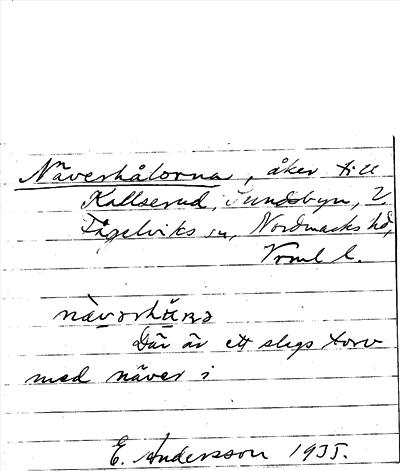 Näverhålorna, åker till
Kallserud, Sundsbyn, 2
Fågelviks sn, Nordmarks hd,
Vrml l.
Där är ett slags torv
med näver i
E. Andersson 1935.